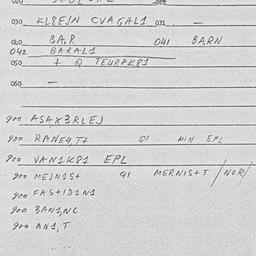 030 KL8EJN CVAGAL1 031 —
040 BA,R 041 BARN
042 BARAL1
050 + Q TEURPK81
060 —
900 ASAX3RLEJ
900 RANE4,T+ Q1 MIN EPL
900 VAN1K81 EPL
900 MEJN1S+ Q1 MERNIS+T /NOR/
900 FAS+1D1N1
900 BAN1,NC
900 AN1,T